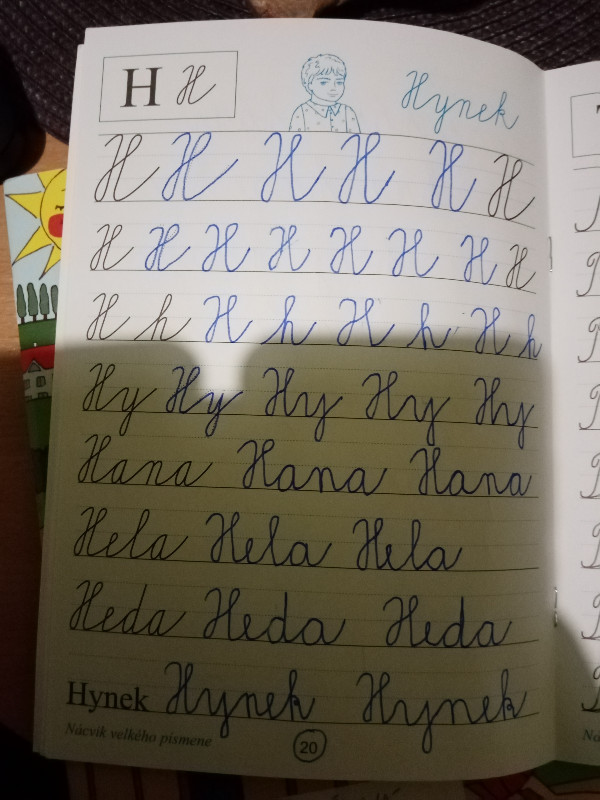 H H Hynek
H H H H H H
H H H H H H H H
H h H h H h H h
Hy Hy Hy Hy Hy
Hana Hana Hana
Hela Hela Hela
Heda Heda Heda
Hynek Hynek Hynek
Nácvik velkého písmene 20